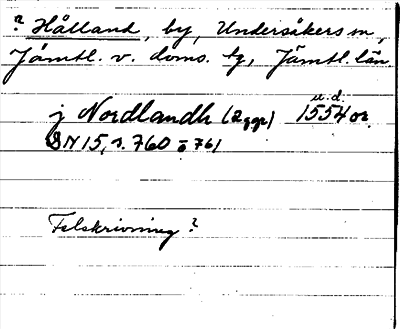 ? Hålland, by, Undersåkers sn,
Jämtl. v. doms. tg, Jämtl. län
u.d.
j Nordlandh (2 ggr) 1554 or.
DN 15, s. 760 o 761
Felskrivning?